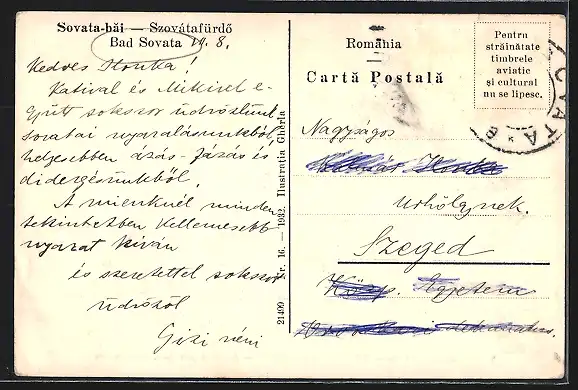 Sovata-băi — Szovátafürdő
Bad Sovata 8.
Kedves Ilonka!
Katival és Mikivel e-
gyütt sokszor üdvözlünk
sovatai nyaralásunkból
helyesebben ázás-fázás és
didergésünkből.
A mienknél minden
tekintetben kellemesebb
nyarat kíván
és szeretettel sokszor
üdvözöl
Gizi néni
21499 Nr. 16. — 1932. Ilustrația Gherla
România
Cartă Poștală
Pentru
străinătate
timbrele
aviatic
și cultural
nu se lipesc.
OVATA
Nagyságos
Ilonka
urhölgynek.
Szeged
Egyetem